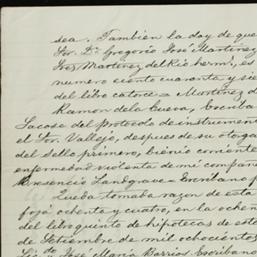 sea. Tambien la doy de que
Sor. Dn. Gregorio José Martinez
José Martinez del Rio herm.
numero ciento cuarenta y sie
del libro catorce = Martinez d
Ramon de la Cueva, Escriba
Sacose del Protocolo de instrument
el Sor. Vallejo, despues de su otorga
del sello primero, bienio corriente
enfermedad violenta de mi compañe
Landgrave = Escribano p
Queda tomada razon de esta
foja ochenta y cuatro, en la ochen
del libro quinto de hipotecas de este
de Setiembre de mil ochocientos
José Maria Barrios Escribano